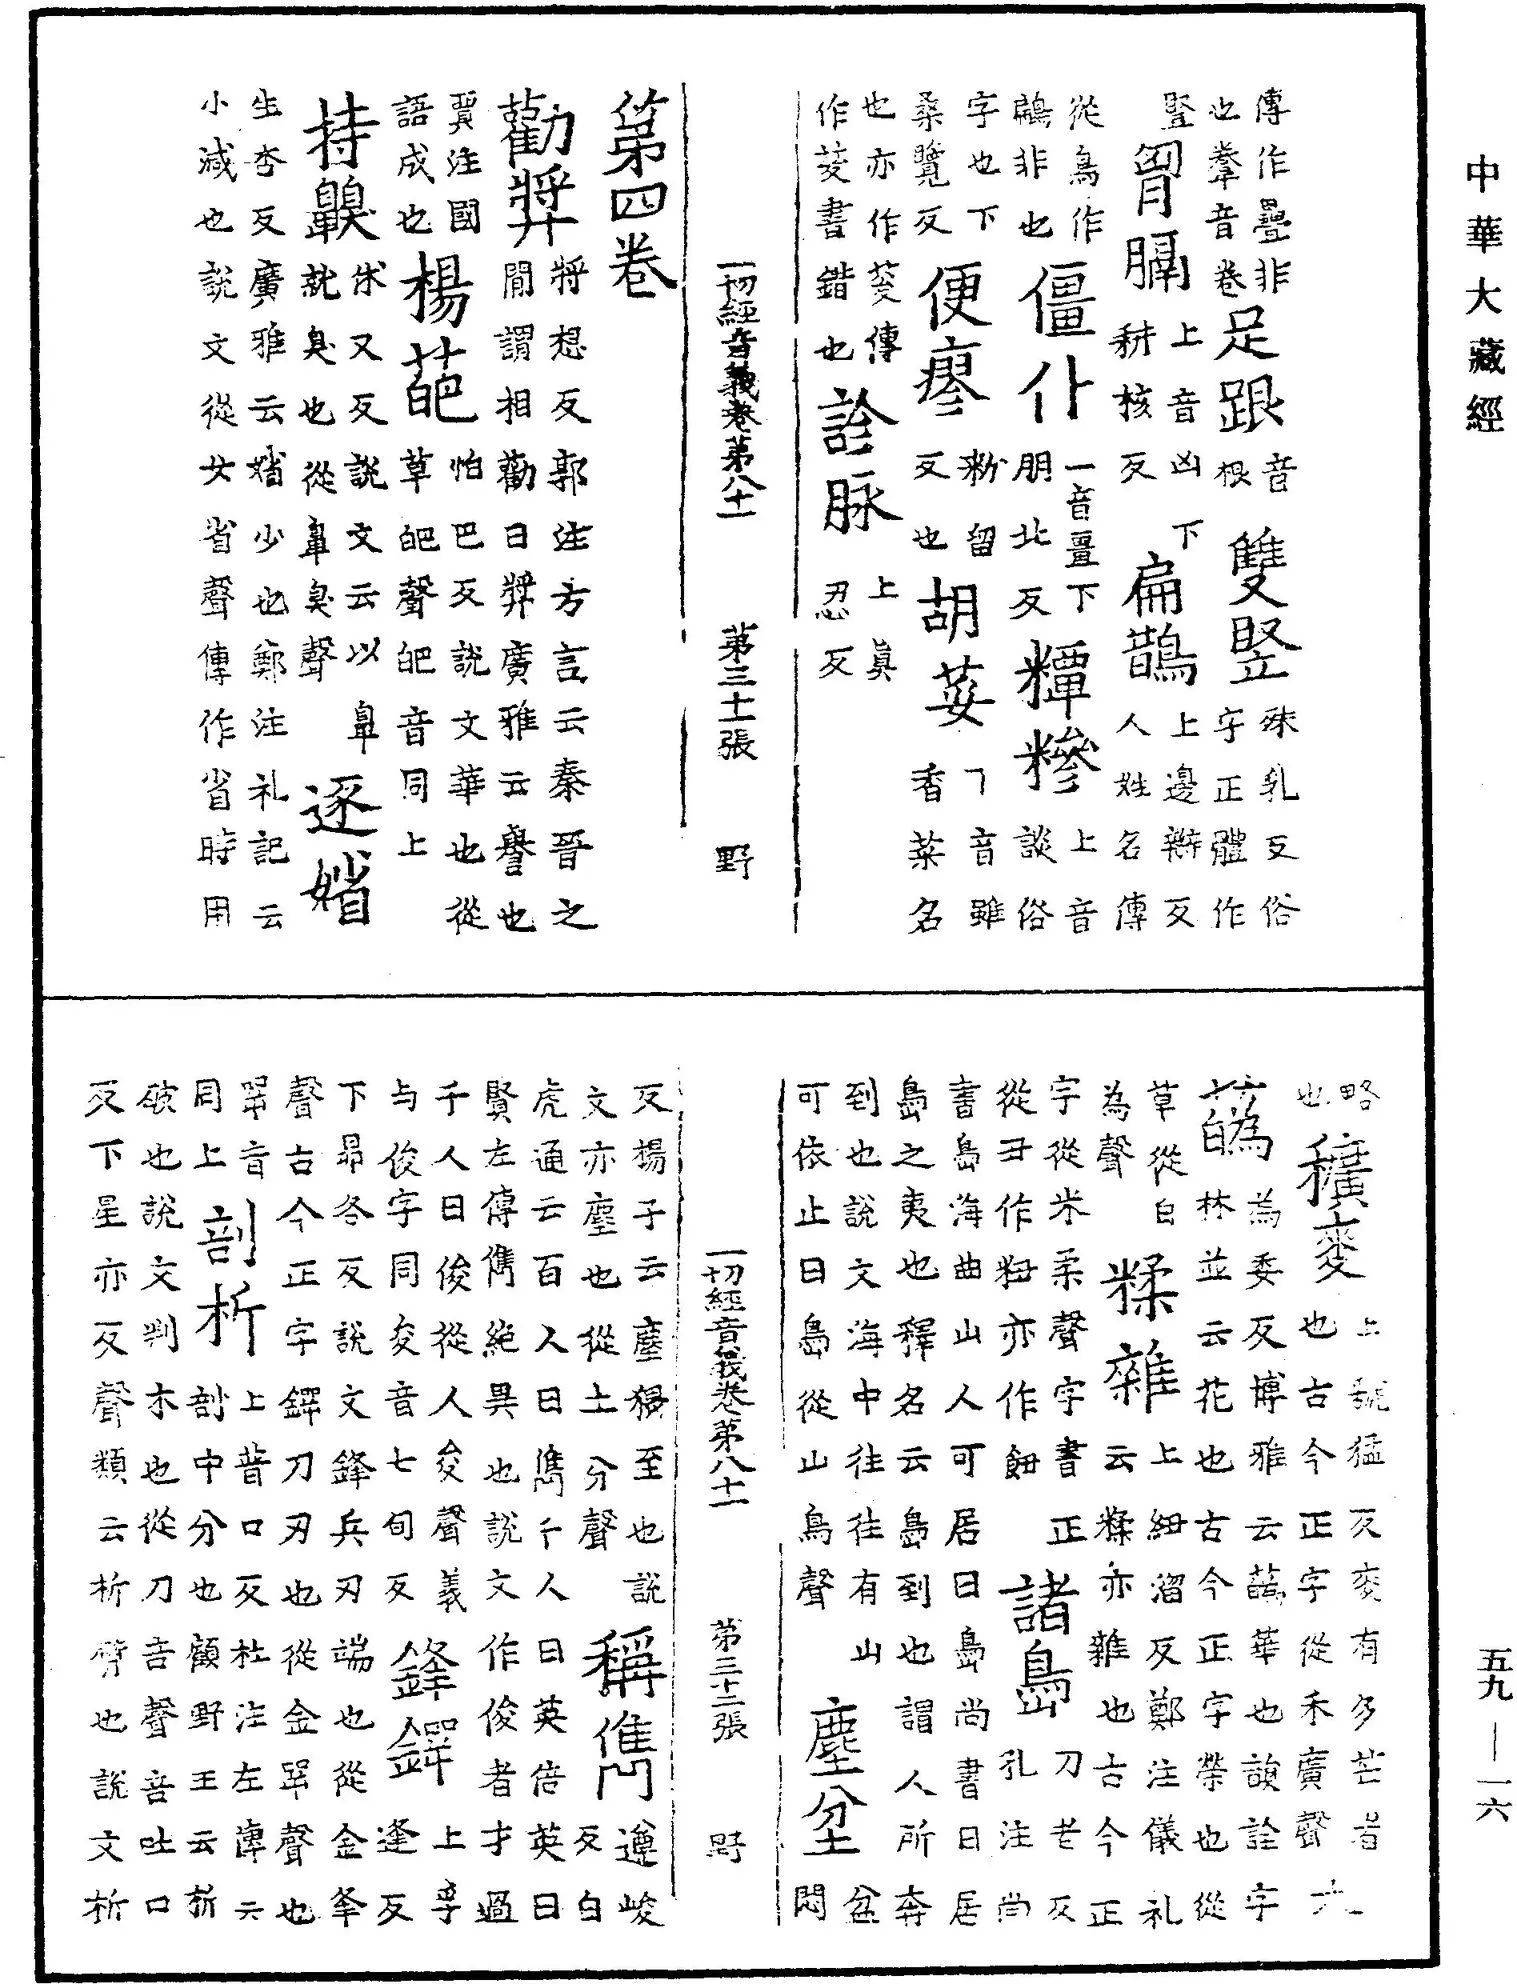 中華大藏經
傳作疊非
也羣音卷
足跟
音
根
雙竪
殊乳反俗
字正體作
豎
胷膈
上音凶下
耕核反
扁鵲
上邊辯反
人姓名傳
從鳥作
鶣非也
僵仆
一音畺下
朋北反
糝
上音
談俗
字也下
桑覽反
便瘳
勑留
反也
胡荽
下音雖
香菜名
也亦作荾傳
作荾書錯也
診脉
上真
忍反
一切經音義卷第八十一 第三十一張 野
第四卷
勸奬
將想反郭注方言云秦晉之
間謂相勸曰奬廣雅云譽也
賈注國
語成也
楊葩
怕巴反說文華也從
草皅聲皅音同上
持齅
休又反說文云以鼻
就臭也從鼻臭聲
逐媘
生杏反廣雅云媘少也鄭注礼記云
小減也說文從女省聲傳作省時用
略
也
穬麥
上號猛反麥有多芒者
也古今正字從禾廣聲
蒍
為委反博雅云蒍華也韻詮字
林並云花也古今正字榮也從
草從白
為聲
糅雜
上紐溜反鄭注儀礼
云糅亦雜也古今正
字從米柔聲字書正
從丑作粈亦作𩚖
諸島
刀老反
孔注尚
書島海曲山人可居曰島尚書曰居
島之夷也釋名云島到也謂人所奔
到也說文海中往往有山
可依止曰島從山鳥聲
塵坌
盆
悶
一切經音義卷第八十一 第三十二張 野
反揚子云塵猥至也說
文亦塵也從土分聲
稱儁
遵峻
反白
虎通云百人曰儁千人曰英倍英曰
賢左傳儁絕異也說文作俊者才過
千人曰俊從人夋聲義
与俊字同夋音七旬反
鋒鍔
上孚
逢反
下昴各反說文鋒兵刃端也從金夆
聲古今正字鍔刀刃也從金咢聲也
咢音
同上
剖析
上普口反杜注左傳云
剖中分也顧野王云析
破也說文判木也從刀咅聲咅吐口
反下星亦反聲類云析劈也說文析
五九—一六